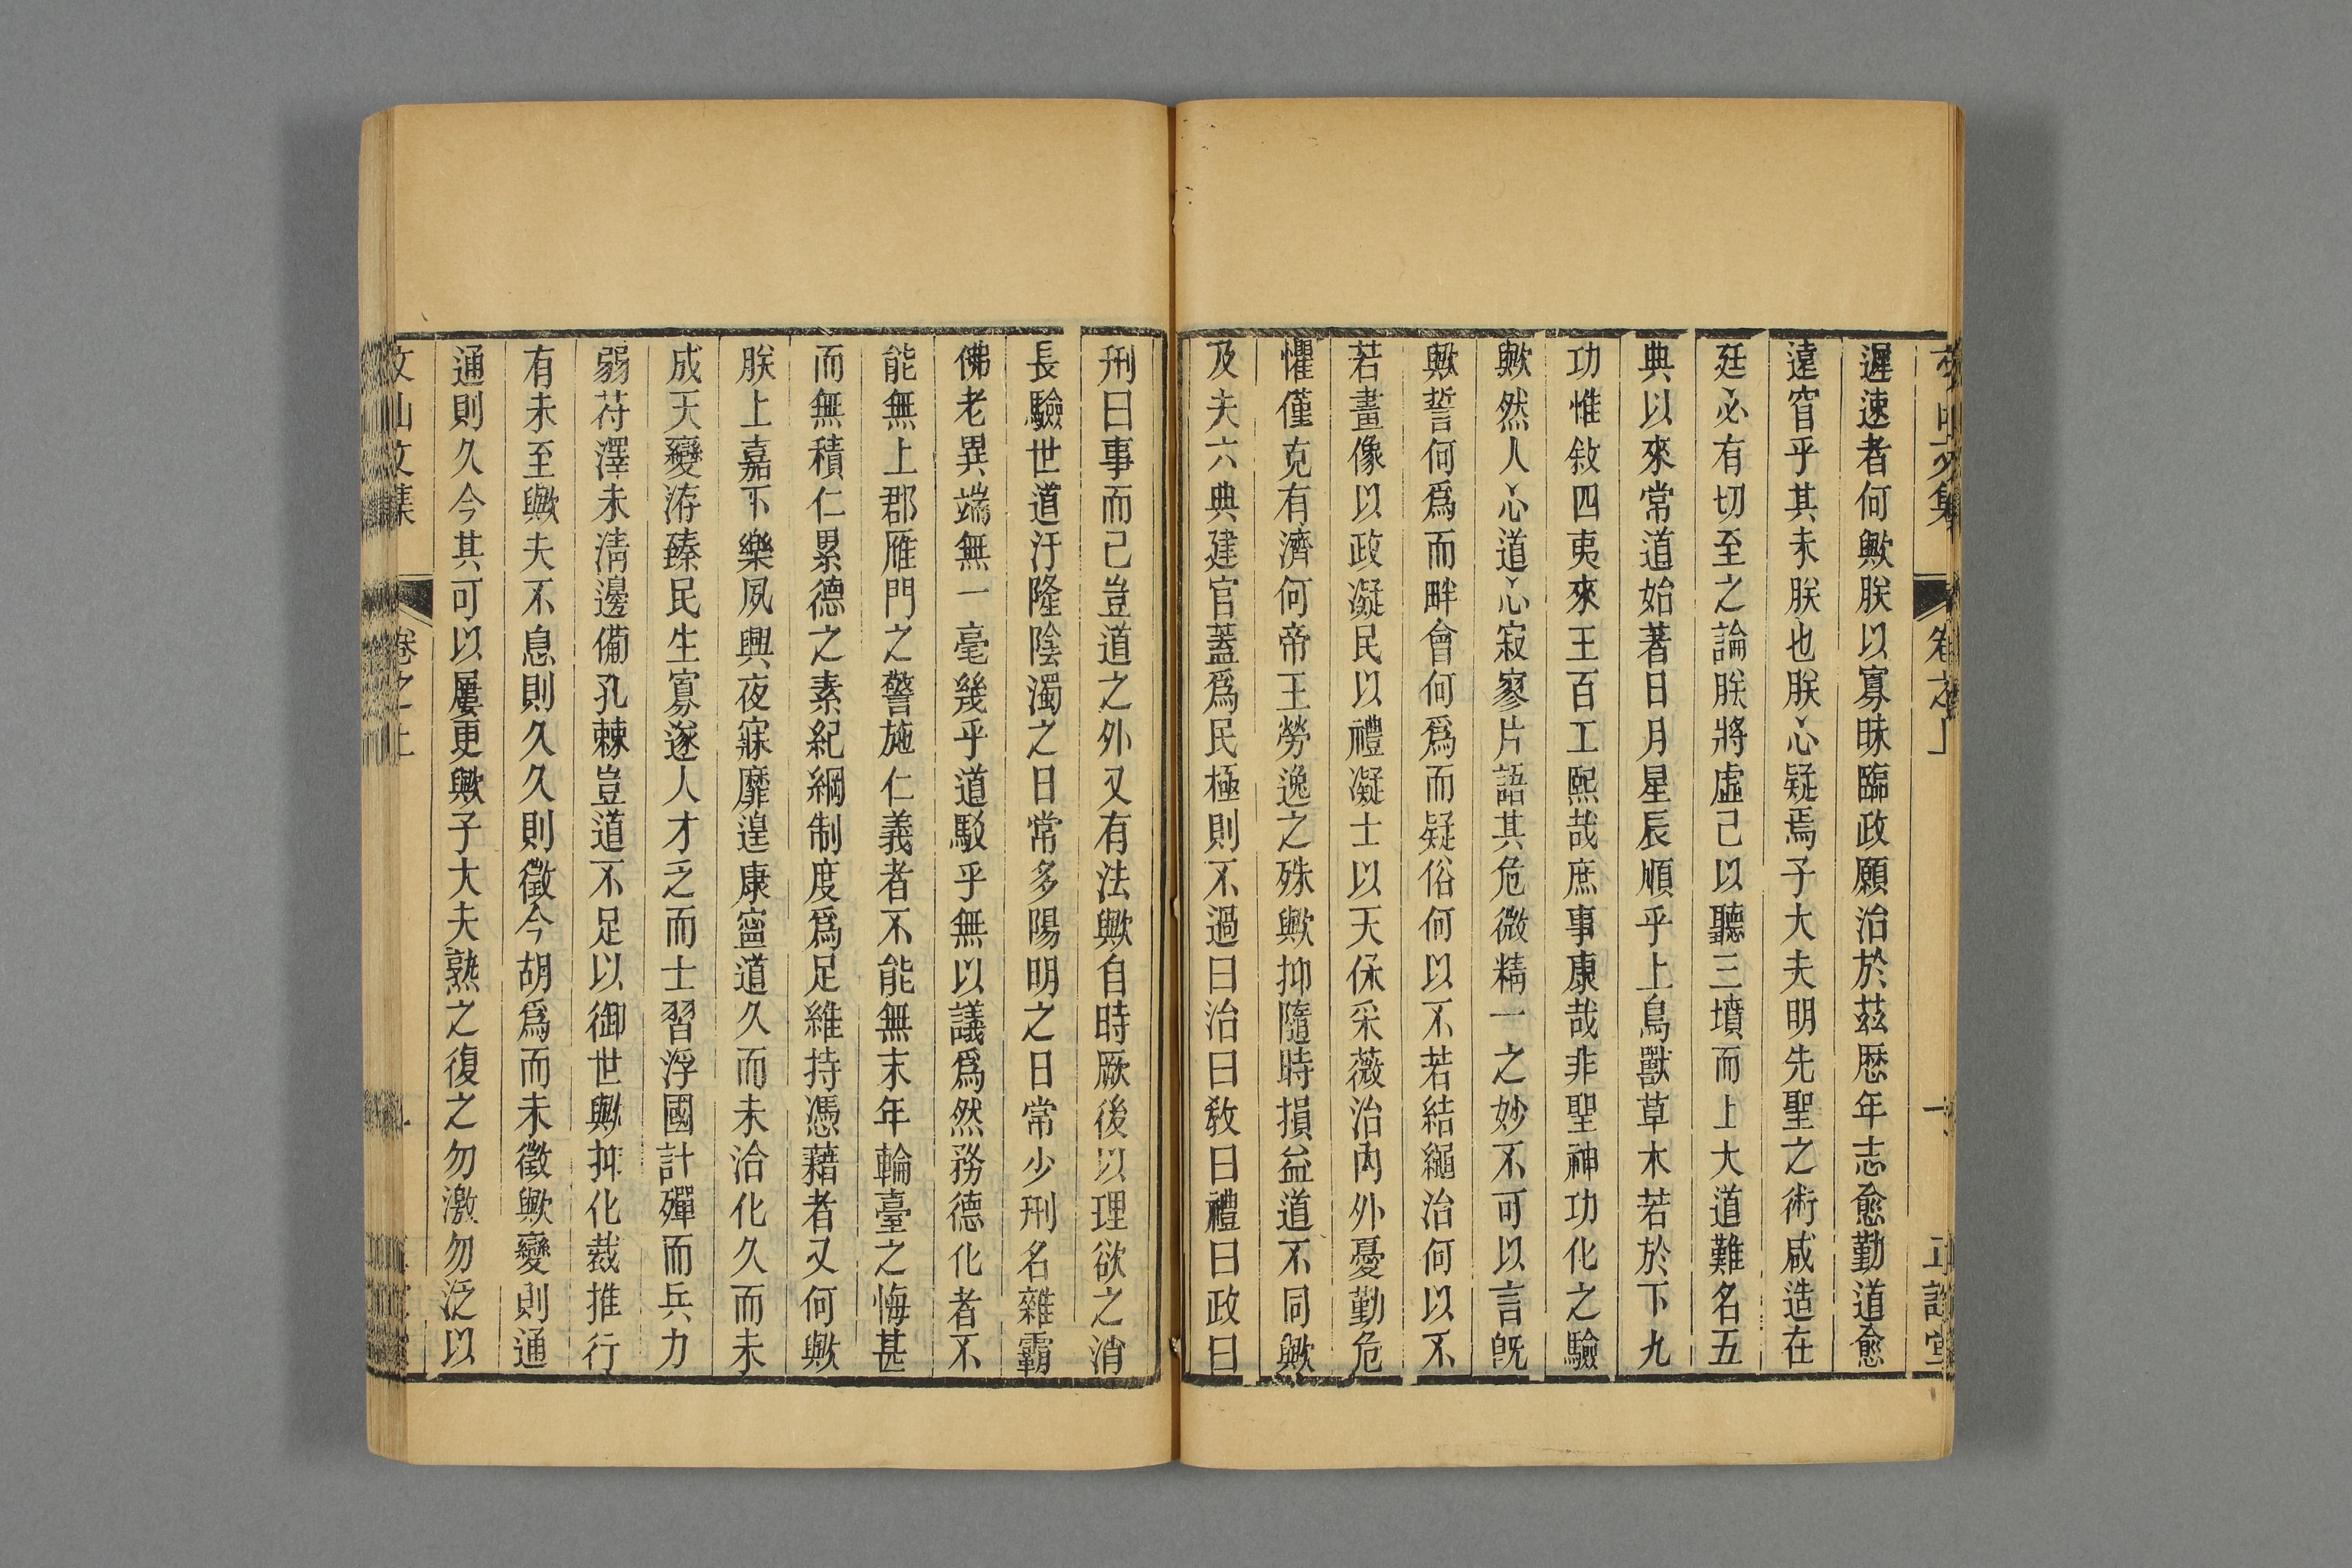 遲速者何歟朕以寡昧臨政願治於兹歷年志愈勤道愈
遠窅乎其未朕也朕心疑焉子大夫明先聖之術咸造在
廷必有切至之論朕將虛己以聽三墳而上大道難名五
典以來常道始著日月星辰順乎上鳥獸草木若於下九
功惟敘四夷來王百工熙哉庶事康哉非聖神功化之驗
歟然人心道心寂寥片語其危微精一之妙不可以言旣
歟誓何爲而畔會何爲而疑俗何以不若結繩治何以不
若畫像以政凝民以禮凝士以天保采薇治內外憂勤危
懼僅克有濟何帝王勞逸之殊歟抑隨時損益道不同歟
及夫六典建官蓋爲民極則不過曰治曰敎曰禮曰政曰
刑曰事而已豈道之外又有法歟自時厥後以理欲之消
長驗世道汙隆陰濁之日常多陽明之日常少刑名雜霸
佛老異端無一毫幾乎道駁乎無以議爲然務德化者不
能無上郡雁門之警施仁義者不能無末年輪臺之悔甚
而無積仁累德之素紀綱制度爲足維持憑藉者又何歟
朕上嘉下樂夙興夜寐靡遑康寧道久而未洽化久而未
成天變洊臻民生寡遂人才乏而士習浮國計殫而兵力
弱苻澤未淸邊備孔棘豈道不足以御世歟抑化裁推行
有未至歟夫不息則久久則徵今胡爲而未徵歟變則通
通則久今其可以屢更歟子大夫熟之復之勿激勿泛以
文山文集 卷之上